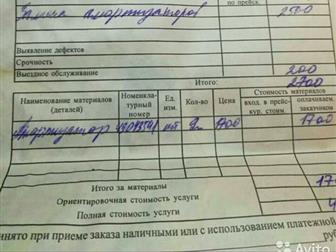 по прейск.
Замена амортизаторов 2500
Выявление дефектов
Срочность
Выездное обслуживание 200
Итого: 2700
Наименование материалов (деталей) Номенклатурный номер Ед. изм. Кол-во Цена Стоимость материалов
вход. в прейскур. стоим. оплачиваем. заказчиков
Амортизатор шт 1700 1700
Итого за материалы 17
Ориентировочная стоимость услуги
Полная стоимость услуги 4
инято при приеме заказа наличными или с использованием платежной
руб
Avito